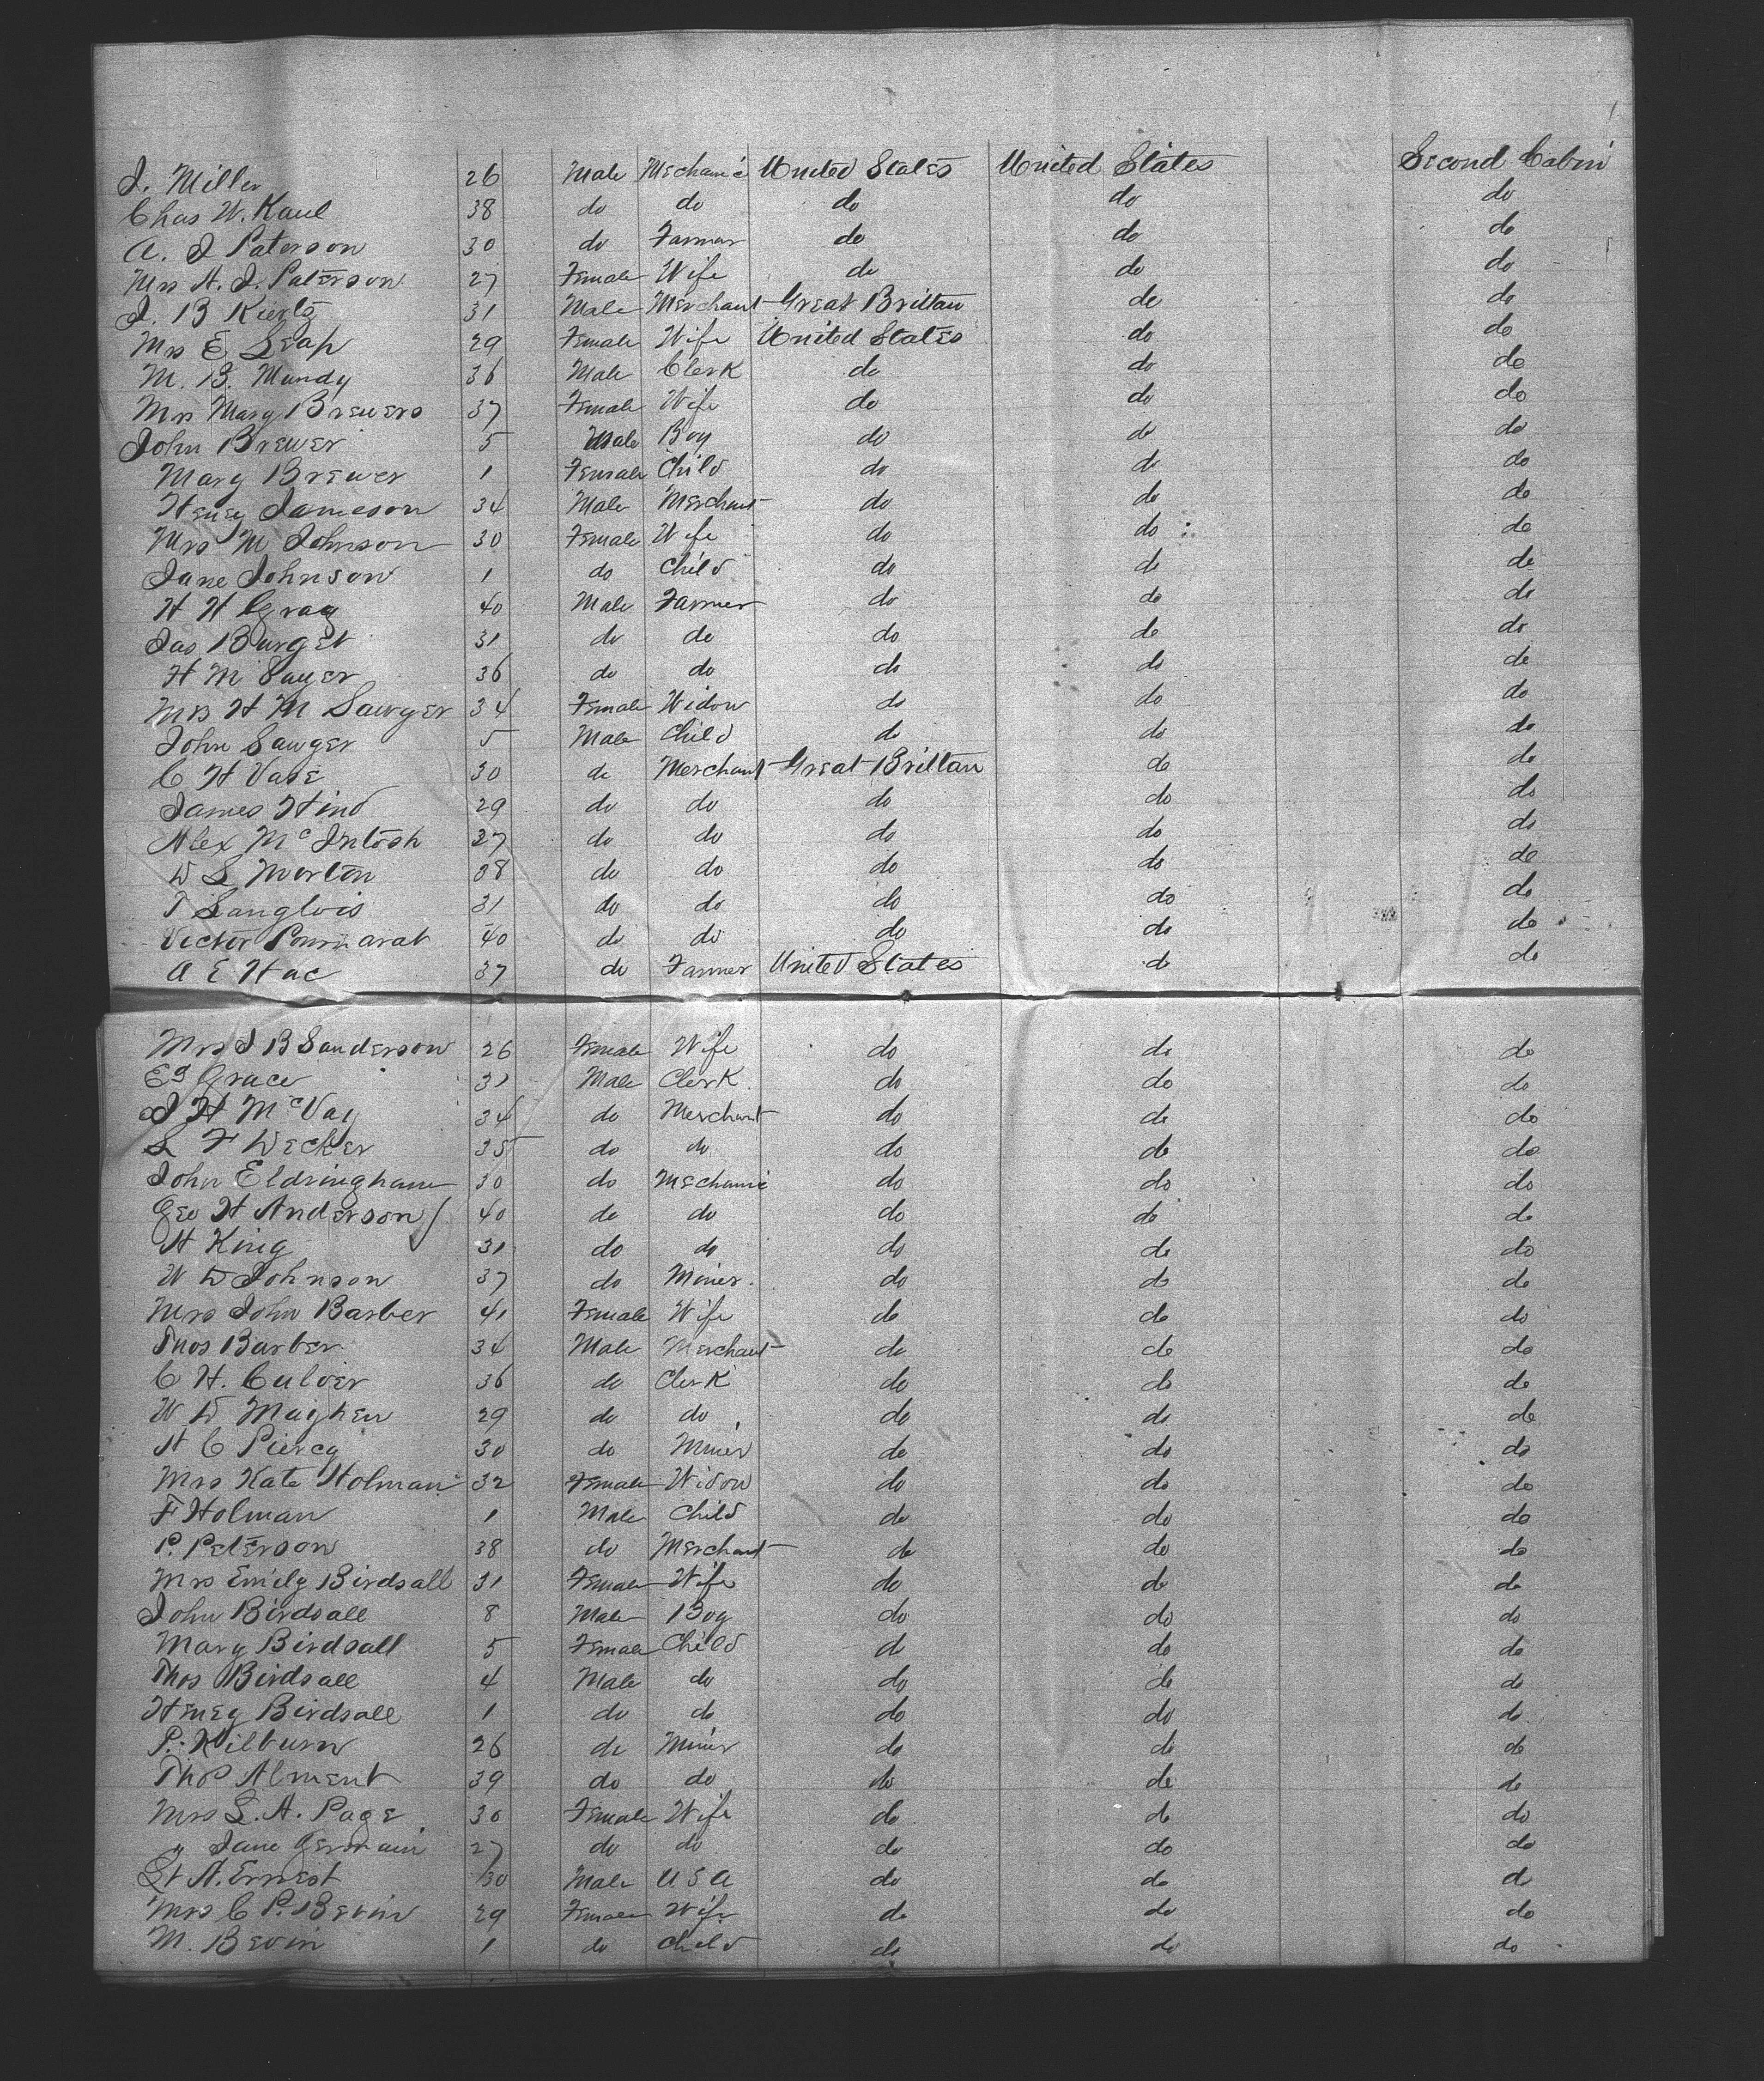 J. Miller 26 Male Mechanic United States United States Second Cabin
Chas W. Kaul 38 do do do do do
A. J Paterson 30 do Farmer do do do
Mrs A. J. Paterson 27 Female Wife do do do
J. B 31 Male Merchant Great Brittan do do
Mrs E Leap 29 Female Wife United States do do
M. B. Mundy 36 Male Clerk do do do
Mrs Mary Brewers 37 Female Wife do do do
John Brewer 5 Male Boy do do do
Mary Brewer 1 Female Child do do do
Henry Jameson 34 Male Merchant do do do
Mrs M Johnson 30 Female Wife do do do
Jane Johnson 1 do Child do do do
H H Gray 40 Male Farmer do do do
Jas Burget 31 do do do do do
H M Sayer 36 do do do do do
Mrs H M Sawyer 34 Female Widow do do do
John Sawyer 5 Male Child do do do
C H Vase 30 do Merchant Great Brittan do do
James Hind 29 do do do do do
Alex McIntosh 27 do do do do do
W S Morton 38 do do do do do
T Langlois 31 do do do do do
Victor 40 do do do do do
A E Hac 37 do Farmer United States do do
Mrs J B Sanderson 26 Female Wife do do do
Ed Grace 31 Male Clerk do do do
J H McVay 34 do Merchant do do do
L F Decker 35 do do do do do
John Eldringham 30 do Mechanic do do do
Geo H Anderson 40 do do do do do
H King 31 do do do do do
W D Johnson 37 do Miner. do do do
Mrs John Barber 41 Female Wife do do do
Thos Barber 34 Male Merchant do do do
C H. Culver 36 do Clerk do do do
W D Maghen 29 do do do do do
H C Piercy 30 do Miner do do do
Mrs Kate Holman 32 Female Widow do do do
F Holman 1 Male Child do do do
P. Peterson 38 do Merchant do do do
Mrs Emily Birdsall 31 Female Wife do do do
John Birdsall 8 Male Boy do do do
Mary Birdsall 5 Female Child do do do
Thos Birdsall 4 Male do do do do
Henry Birdsall 1 do do do do do
P. Kilburn 26 do Miner do do do
Thos Alment 39 do do do do do
Mrs L. A. Page 30 Female Wife do do do
" Jane Germain 27 do do do do do
Lt A. Ernest 30 Male USA do do do
Mrs C P. Bevin 29 Female Wife do do do
M. Bevin 1 do Child do do do